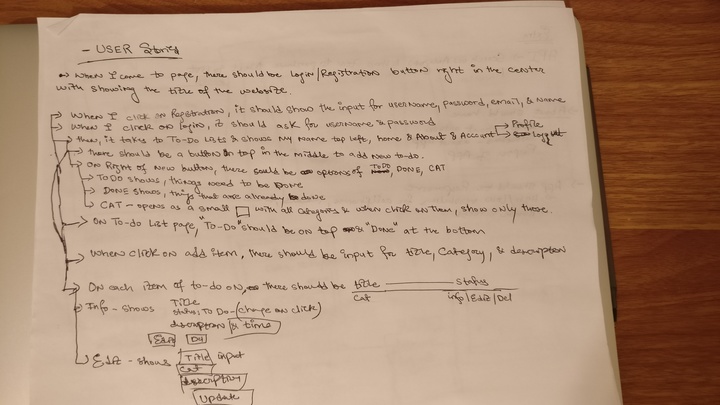 - USER Stories
When I come to page, there should be login/Registration button right in the center
with showing the title of the website.
When I click on Registration, it should show the input for username, password, email, & name
When I click on login, it should ask for username & password
then, it takes to To-Do Lists & shows my name top left, home & About & Account Profile
logout
there should be a button on top in the middle to add new to-do.
On Right of New button, there should be options of TODO, DONE, CAT
TODO shows, things need to be Done
DONE shows, things that are already done
CAT - opens as a small with all categories & when click on them, show only these.
On To-do List page, "To-Do" should be on top & "Done" at the bottom
When click on add item, there should be input for title, Category, & description
On each item of to-do on, there should be title status
Cat info/Edit/Del
Info - shows Title
status: To Do - (change on click)
description & time
Edit Del
Edit - shows Title input
Cat
description
Update